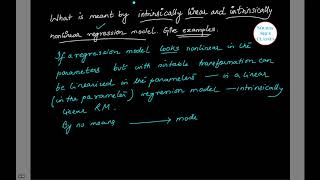 What is meant by intrinsically linear and intrinsically
nonlinear regression model. Give examples.
If a regression model looks nonlinear in the
parameters but with suitable transformation can
be linearized in the parameters — is a linear
(in the parameter) regression model — intrinsically
linear RM.
By no means → mode